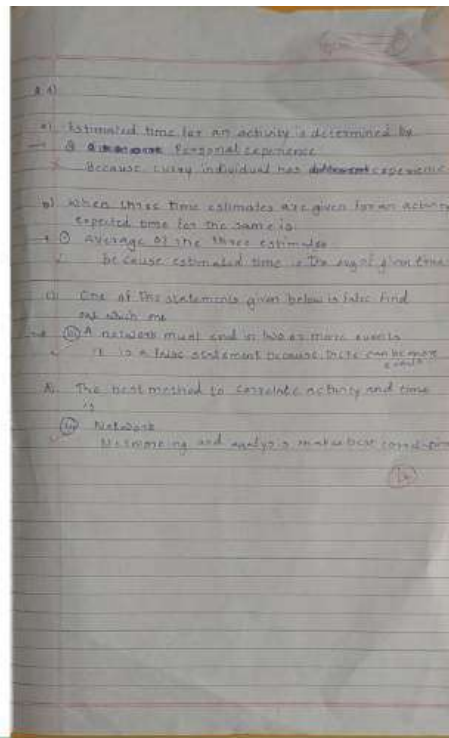 a) Estimated time for an activity is determined by
→ Personal experience
× Because every individual has experience
b) When three time estimates are given for an activity
expected time for the same is
→ ① average of the three estimates
× because estimated time is the avg of given time
c) One of the statements given below is false. Find
out which one
→ (iii) A network must end in two or more events
it is a false statement because there can be more
events
d) The best method to correlate activity and time
is
(iv) Network
Networking and analysis makes best